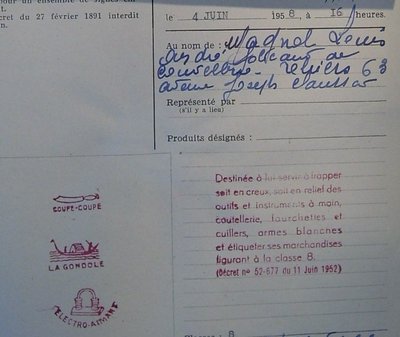 t.
cret du 27 février 1891 interdit
le 4 JUIN 1958, à 16 heures.
Au nom de: Magnol Louis
André fabricant de
coutellerie 63
avenue Joseph
Représenté par
(s'il y a lieu)
Produits désignés :
COUPE-COUPE
LA GONDOLE
ELECTRO-AIMANT
Destinée à lui servir à frapper
soit en creux, soit en relief des
outils et instruments à main,
coutellerie, fourchettes et
cuillers, armes blanches
et étiqueter ses marchandises
figurant à la classe 8.
(Décret no 52-677 du 11 Juin 1952)
8